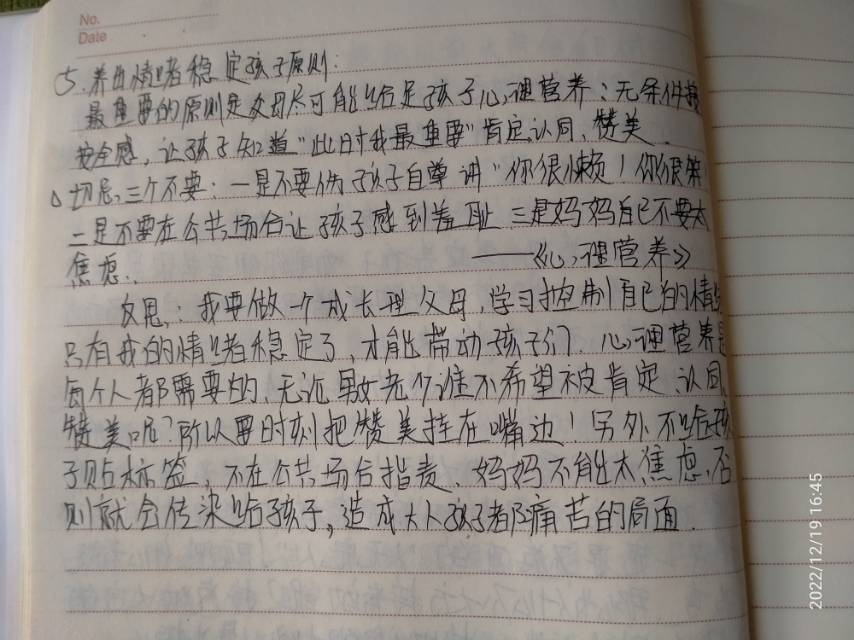 No.
Date
5. 养出情绪稳定孩子原则:
最重要的原则是父母尽可能给足孩子心理营养:无条件接
安全感,让孩子知道“此时我最重要”肯定、认同、赞美.
△切忌,三个不要:一是不要伤孩子自尊讲“你很懒!你很笨
二是不要在公共场合让孩子感到羞耻 三是妈妈自己不要太
焦虑. ——《心理营养》
反思:我要做一个成长型父母,学习控制自己的情绪
只有我的情绪稳定了,才能带动孩子们.心理营养是
每个人都需要的,无论男女老少谁不希望被肯定、认同、
赞美呢?所以要时刻把赞美挂在嘴边!另外不给孩
子贴标签,不在公共场合指责、妈妈不能太焦虑,否
则就会传染给孩子,造成大人孩子都痛苦的局面.
2022/12/19 16:45